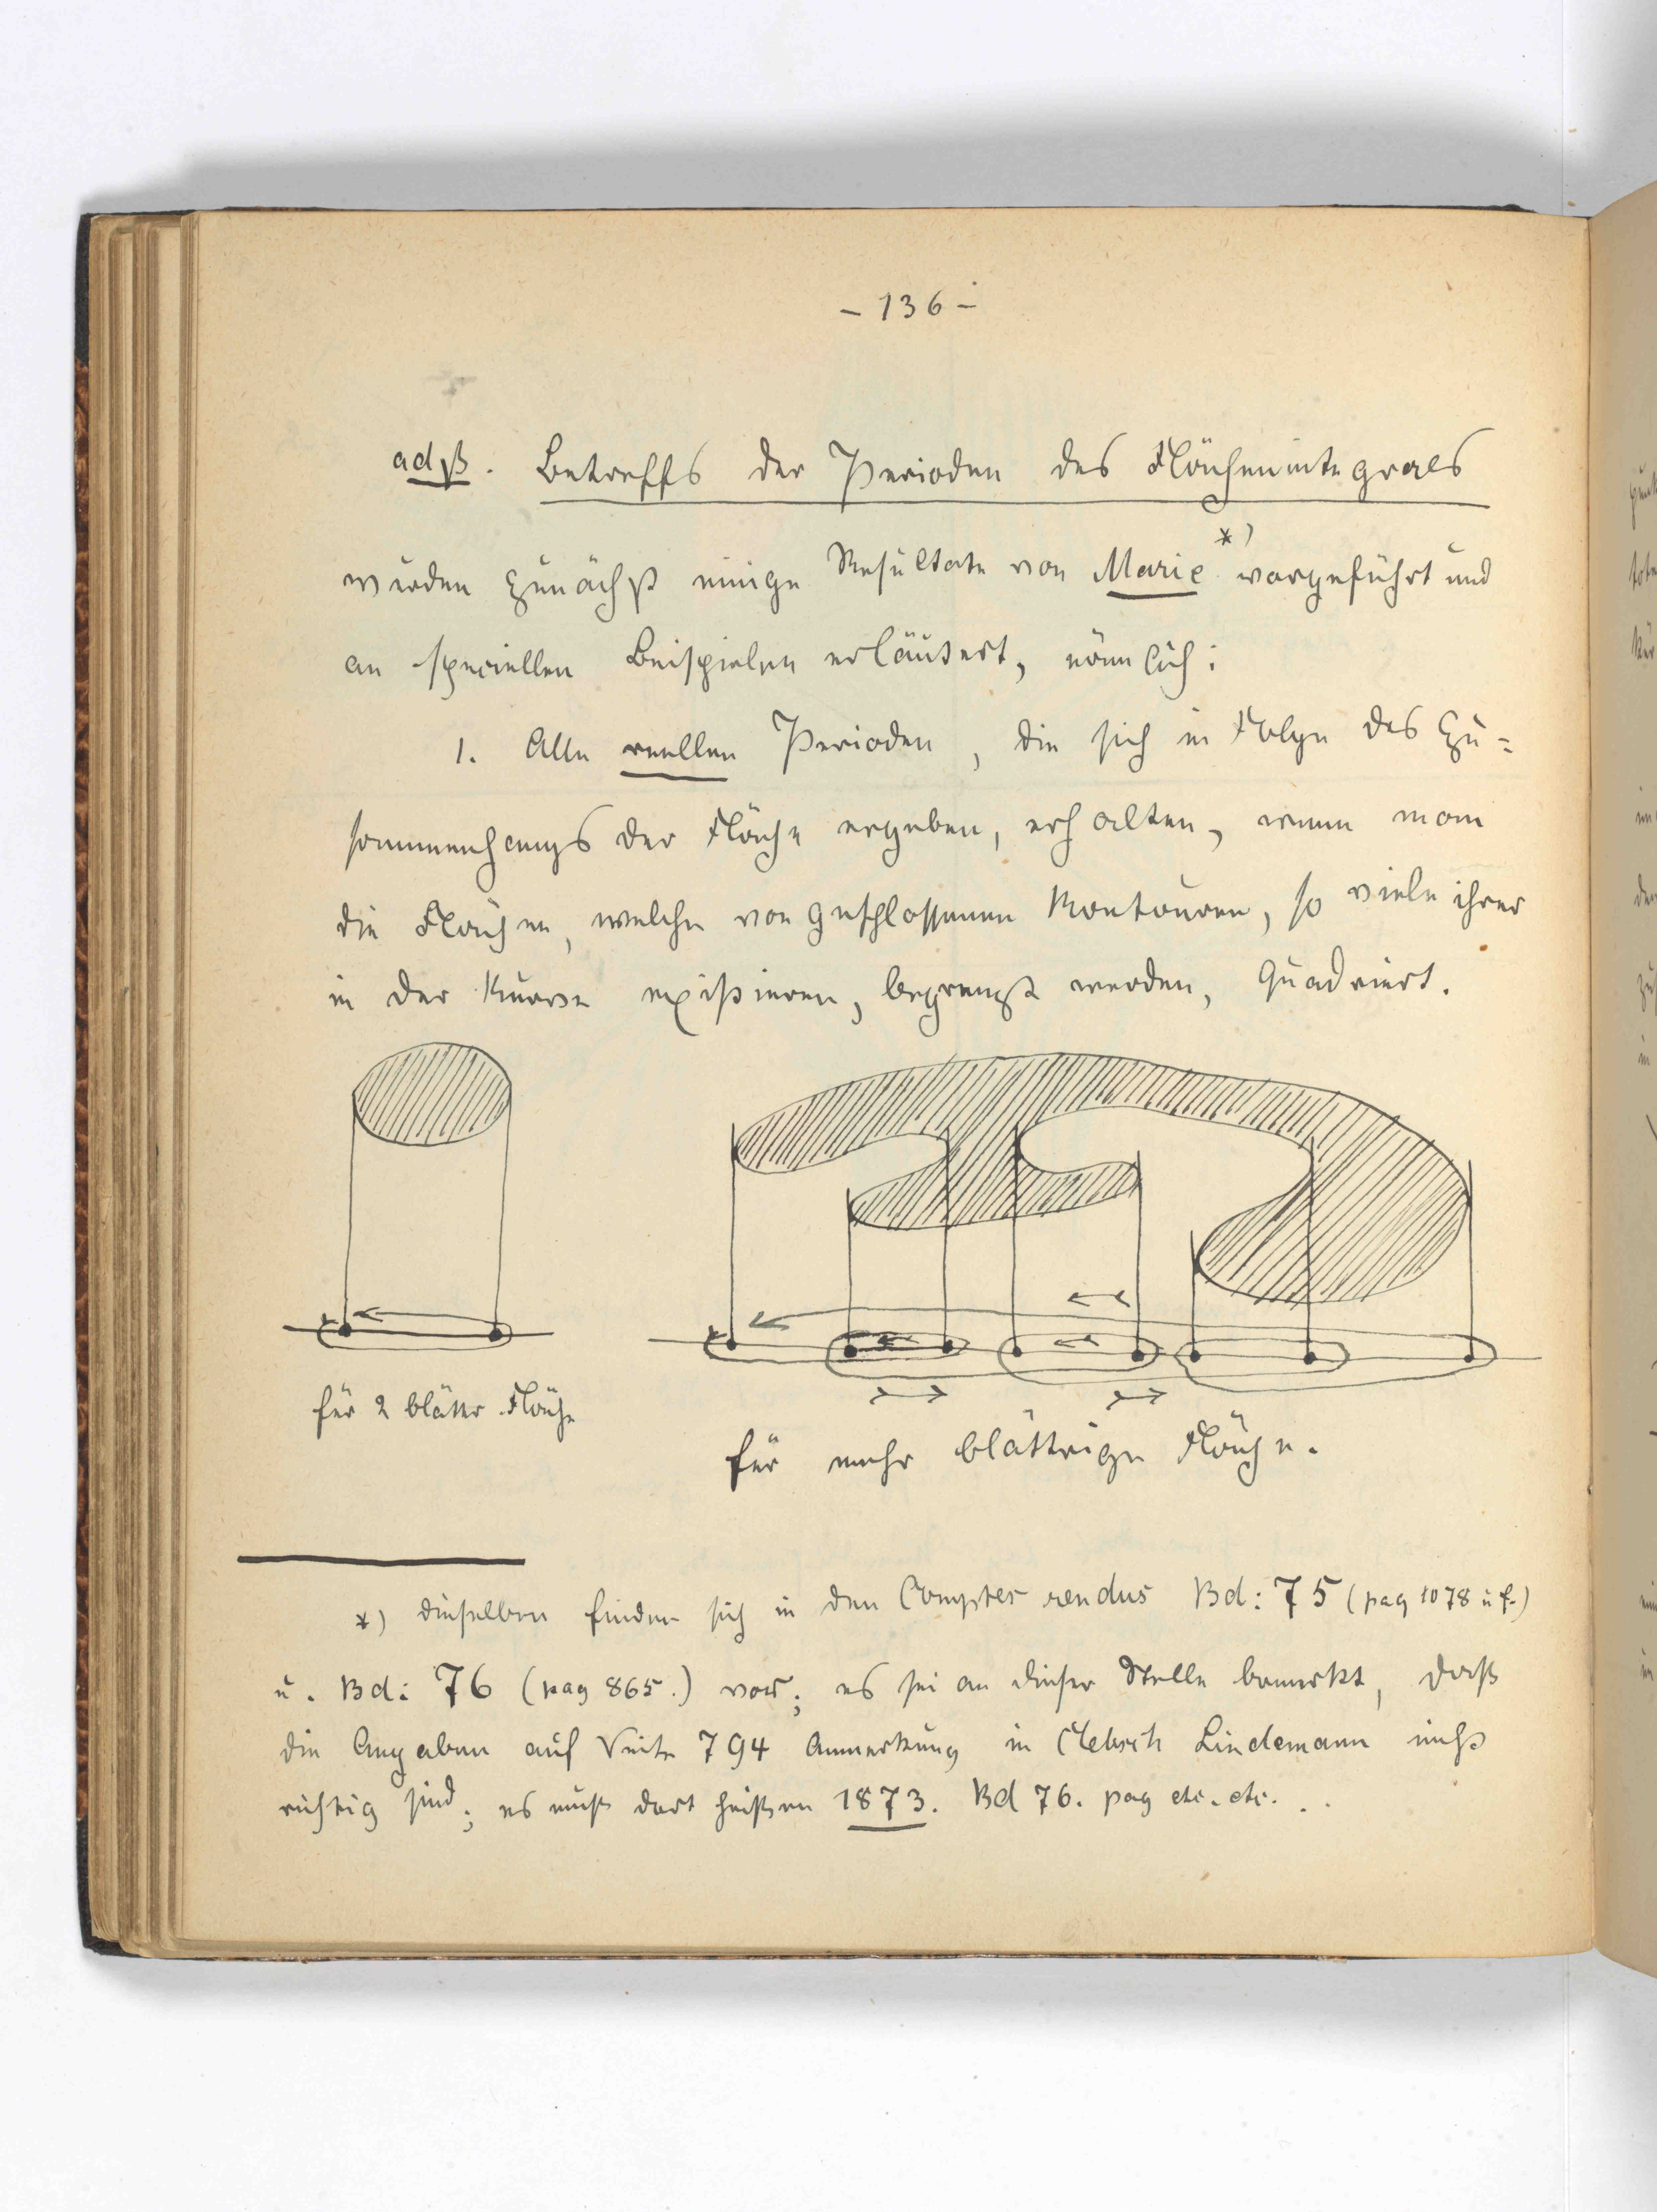 – 136 –
ad β. Betreffs der Perioden des Flächenintegrals
wurden zunächst einige Resultate von Marie *) vorgeführt und
an speciellen Beispielen erläutert, nämlich:
1. Alle reellen Perioden, die sich in Folge des Zu=
sammenhangs der Fläche ergeben, erhalten, wenn man
die Flächen, welche von geschlossenen Kontouren, so viele ihrer
in der Kurve existieren, begrenzt werden, Quadriert.
für 2 blättr Fläche
für mehr blättrige Fläche.
*) dieselben finden sich in den Comptes rendus Bd: 75 (pag 1078 u f.)
u. Bd: 76 (pag 865.) vor; es sei an dieser Stelle bemerkt, daß
die Angaben auf Seite 794 Anmerkung in Clebsch Lindemann nicht
richtig sind; es muß dort heißen 1873. Bd 76. pag etc. etc. . .